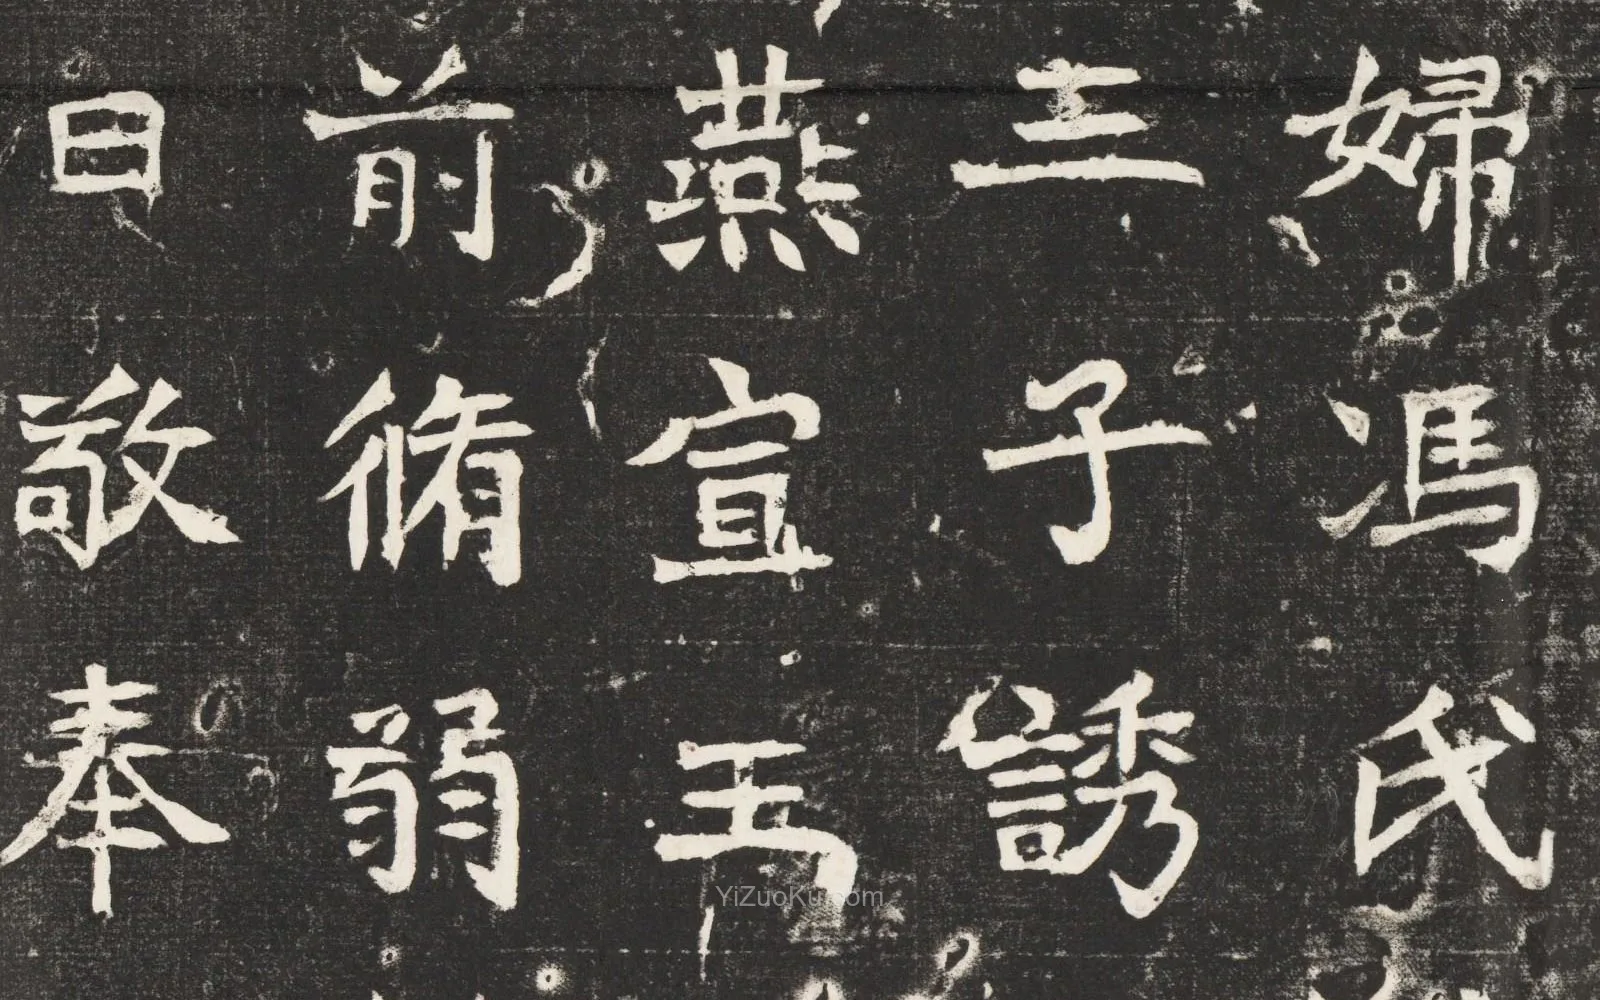 婦馮氏
三子誘
燕宣王
前脩弱
日敬奉
YiZuoKu.com